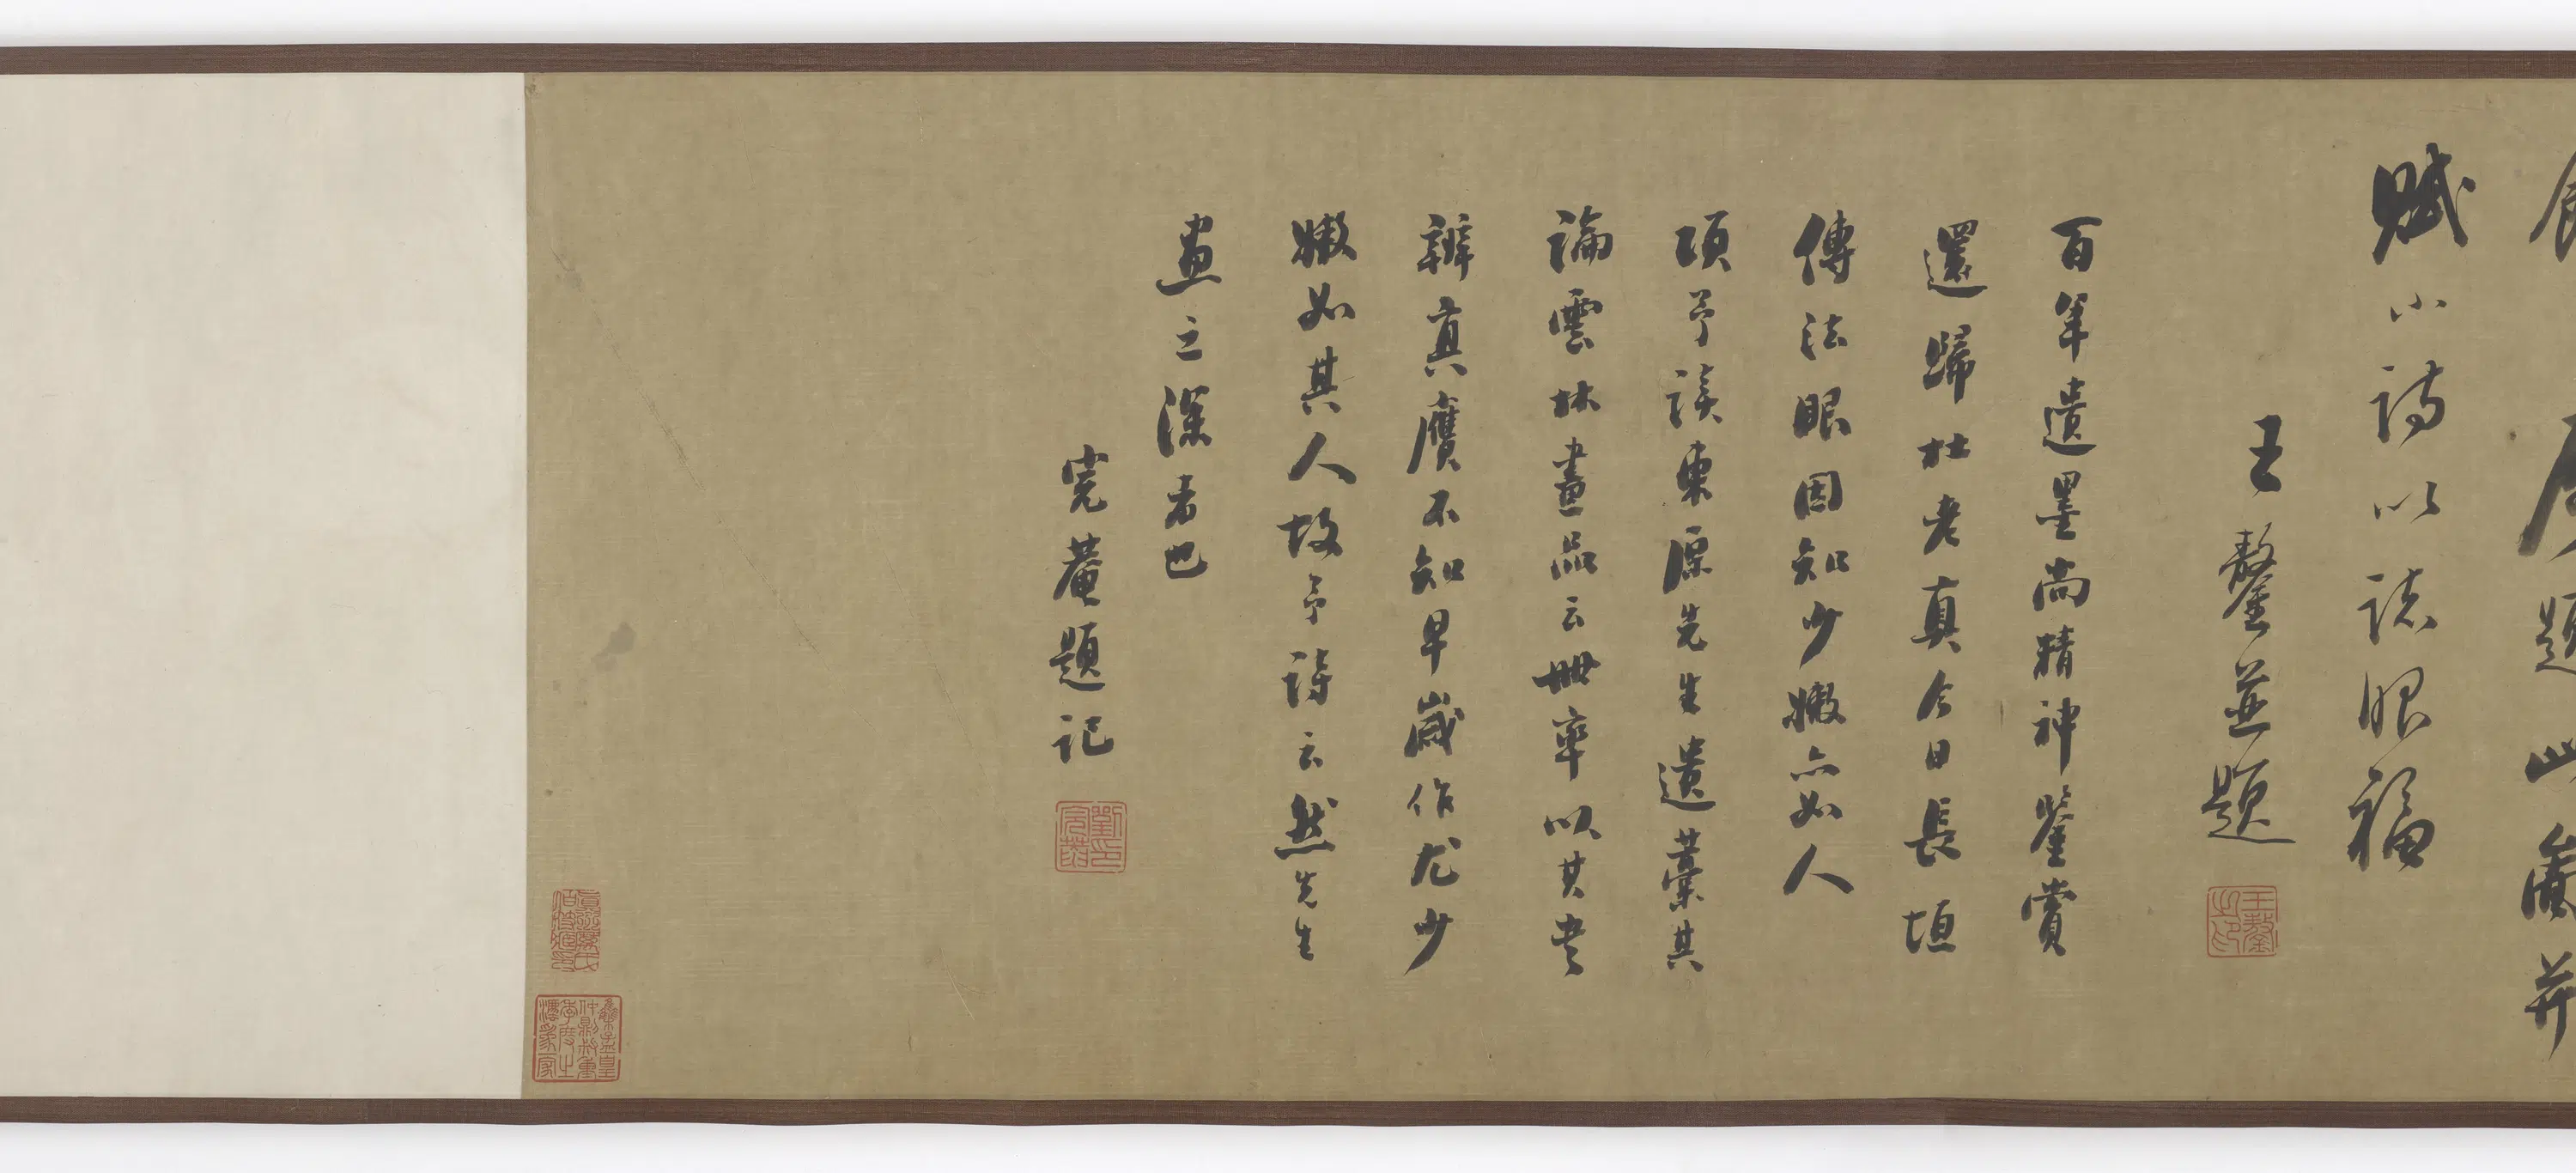 題此卷并
賦小詩以誌眼福
王鏊並題
王鏊之印
百年遺墨尚精神鑒賞
還歸杜老真今日長垣
傳法眼因知少嫩亦如人
頃予讀東原先生遺藁其
論雲林畫品云世率以其老
辨真贋不知早歲作尤少
嫩如其人故予詩云然先生
畫之深者也
完菴題記